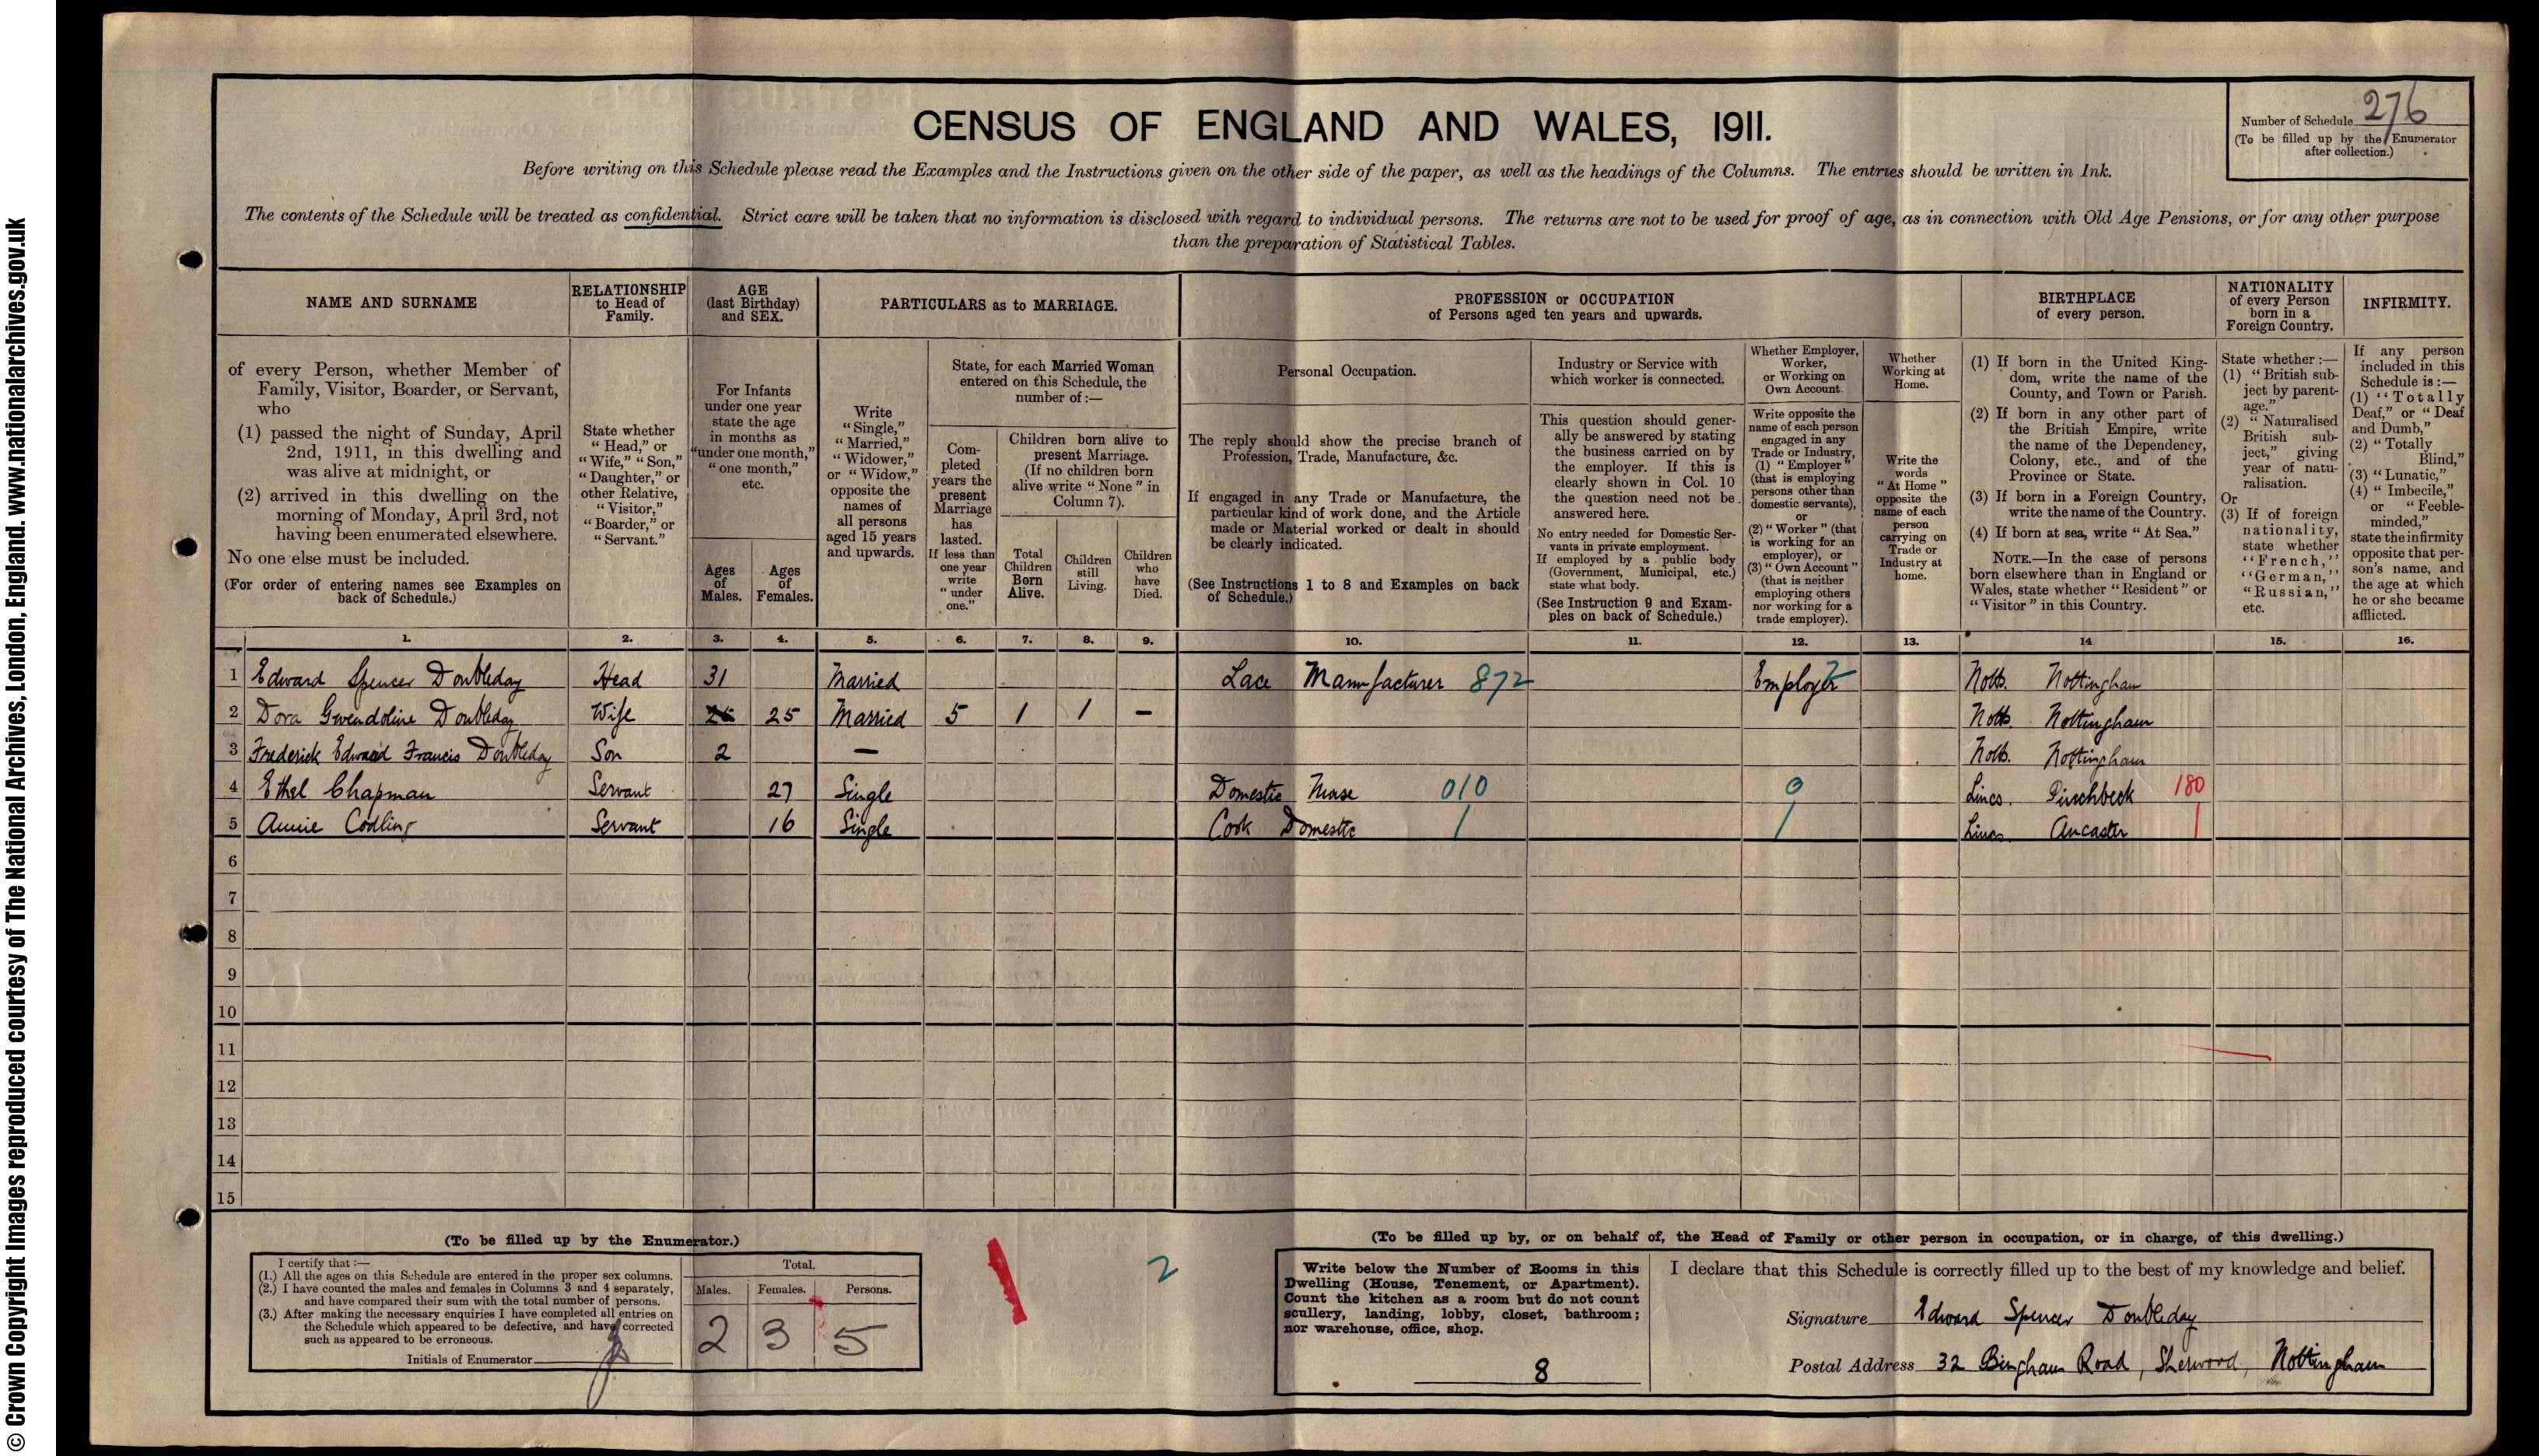 © Crown Copyright Images reproduced courtesy of The National Archives, London, England. www.nationalarchives.gov.uk
CENSUS OF ENGLAND AND WALES, 1911.
Number of Schedule 276
(To be filled up by the Enumerator
after collection.)
Before writing on this Schedule please read the Examples and the Instructions given on the other side of the paper, as well as the headings of the Columns. The entries should be written in Ink.
The contents of the Schedule will be treated as confidential. Strict care will be taken that no information is disclosed with regard to individual persons. The returns are not to be used for proof of age, as in connection with Old Age Pensions, or for any other purpose
than the preparation of Statistical Tables.
NAME AND SURNAME
of every Person, whether Member of
Family, Visitor, Boarder, or Servant,
who
(1) passed the night of Sunday, April
2nd, 1911, in this dwelling and
was alive at midnight, or
(2) arrived in this dwelling on the
morning of Monday, April 3rd, not
having been enumerated elsewhere.
No one else must be included.
(For order of entering names see Examples on
back of Schedule.)
RELATIONSHIP
to Head of
Family.
State whether
"Head," or
"Wife," "Son,"
"Daughter," or
other Relative,
"Visitor,"
"Boarder," or
"Servant."
AGE
(last Birthday)
and SEX.
For Infants
under one year
state the age
in months as
"under one month,"
"one month,"
etc.
Ages
of
Males.
Ages
of
Females.
PARTICULARS as to MARRIAGE.
Write
"Single,"
"Married,"
"Widower,"
or "Widow,"
opposite the
names of
all persons
aged 15 years
and upwards.
State, for each Married Woman
entered on this Schedule, the
number of :—
Com-
pleted
years the
present
Marriage
has
lasted.
If less than
one year
write
"under
one."
Children born alive to
present Marriage.
(If no children born
alive write "None" in
Column 7).
Total
Children
Born
Alive.
Children
still
Living.
Children
who
have
Died.
PROFESSION or OCCUPATION
of Persons aged ten years and upwards.
Personal Occupation.
The reply should show the precise branch of
Profession, Trade, Manufacture, &c.
If engaged in any Trade or Manufacture, the
particular kind of work done, and the Article
made or Material worked or dealt in should
be clearly indicated.
(See Instructions 1 to 8 and Examples on back
of Schedule.)
Industry or Service with
which worker is connected.
This question should gener-
ally be answered by stating
the business carried on by
the employer. If this is
clearly shown in Col. 10
the question need not be
answered here.
No entry needed for Domestic Ser-
vants in private employment.
If employed by a public body
(Government, Municipal, etc.)
state what body.
(See Instruction 9 and Exam-
ples on back of Schedule.)
Whether Employer,
Worker,
or Working on
Own Account.
Write opposite the
name of each person
engaged in any
Trade or Industry,
(1) "Employer"
(that is employing
persons other than
domestic servants),
or
(2) "Worker" (that
is working for an
employer), or
(3) "Own Account"
(that is neither
employing others
nor working for a
trade employer).
Whether
Working at
Home.
Write the
words
"At Home"
opposite the
name of each
person
carrying on
Trade or
Industry at
home.
BIRTHPLACE
of every person.
(1) If born in the United King-
dom, write the name of the
County, and Town or Parish.
(2) If born in any other part of
the British Empire, write
the name of the Dependency,
Colony, etc., and of the
Province or State.
(3) If born in a Foreign Country,
write the name of the Country.
(4) If born at sea, write "At Sea."
NOTE.—In the case of persons
born elsewhere than in England or
Wales, state whether "Resident" or
"Visitor" in this Country.
NATIONALITY
of every Person
born in a
Foreign Country.
State whether :—
(1) "British sub-
ject by parent-
age."
(2) "Naturalised
British sub-
ject," giving
year of natu-
ralisation.
Or
(3) If of foreign
nationality,
state whether
"French,"
"German,"
"Russian,"
etc.
INFIRMITY.
If any person
included in this
Schedule is :—
(1) "Totally
Deaf," or "Deaf
and Dumb,"
(2) "Totally
Blind,"
(3) "Lunatic,"
(4) "Imbecile,"
or "Feeble-
minded,"
state the infirmity
opposite that per-
son's name, and
the age at which
he or she became
afflicted.
1. 2. 3. 4. 5. 6. 7. 8. 9. 10. 11. 12. 13. 14 15. 16.
1 Edward Spencer Doubleday Head 31 Married Lace Manufacturer 872 Employer Notts. Nottingham
2 Dora Gwendoline Doubleday Wife 25 Married 5 1 1 — Notts. Nottingham
3 Frederick Edward Francis Doubleday Son 2 — Notts. Nottingham
4 Ethel Chapman Servant 27 Single Domestic Nurse 010 0 Lincs. Pinchbeck 180
5 Annie Codling Servant 16 Single Cook Domestic / / Lincs Ancaster 1
6
7
8
9
10
11
12
13
14
15
(To be filled up by the Enumerator.)
I certify that :—
(1.) All the ages on this Schedule are entered in the proper sex columns.
(2.) I have counted the males and females in Columns 3 and 4 separately,
and have compared their sum with the total number of persons.
(3.) After making the necessary enquiries I have completed all entries on
the Schedule which appeared to be defective, and have corrected
such as appeared to be erroneous.
Initials of Enumerator
Total.
Males. Females. Persons.
2 3 5
2
(To be filled up by, or on behalf of, the Head of Family or other person in occupation, or in charge, of this dwelling.)
Write below the Number of Rooms in this
Dwelling (House, Tenement, or Apartment).
Count the kitchen as a room but do not count
scullery, landing, lobby, closet, bathroom;
nor warehouse, office, shop.
8
I declare that this Schedule is correctly filled up to the best of my knowledge and belief.
Signature Edward Spencer Doubleday
Postal Address 32 Bingham Road, Sherwood, Nottingham